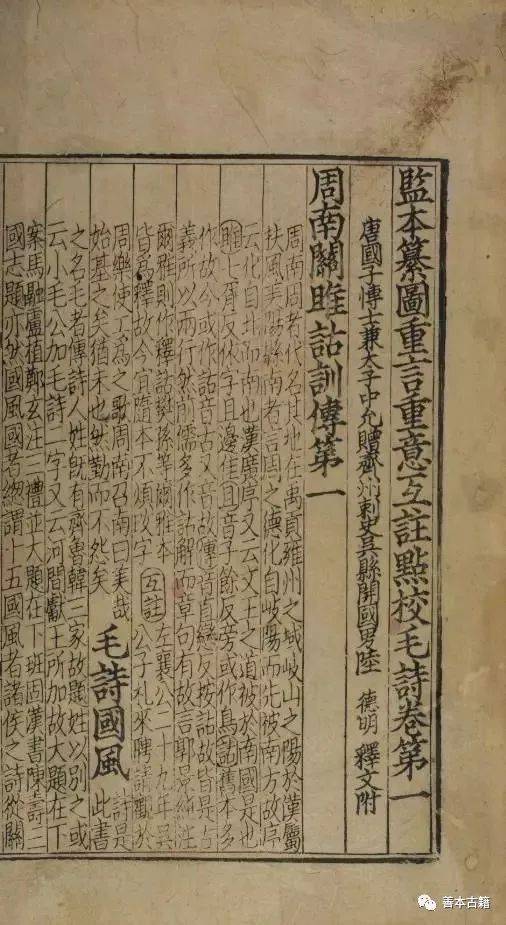 監本纂圖重言重意互註點校毛詩卷第一
唐國子博士兼大子中允贈齊州刺史吳縣開國男陸 德明 釋文附
周南關雎詁訓傳第一
周南周者代名其地在禹貢雍州之域岐山之陽於漢屬
扶風美陽縣南者言周之德化自岐陽而先被南方故序
云化自北而南也漢廣序又云文王之道被於南國是也
雎七胥反依字且邊隹且音子餘反旁或作鳥詁舊本多
作故今或作詁音古又音故傳音直戀反按詁故皆是古
義所以兩行然前儒多作詁解而章句有故言郭景純注
爾雅則作釋詁樊孫等爾雅本
皆爲釋故今宜隨本不煩改字
互註
左襄公二十九年吳
公子札來聘請觀於
周樂使工爲之歌周南召南曰美哉
始基之矣猶未也然勤而不怨矣
毛詩國風
詩是
此書
之名毛者傳詩人姓既有齊魯韓三家故題姓以別之或
云小毛公加毛詩二字又云河間獻王所加故大題在下
案馬融盧植鄭玄注三禮並大題在下班固漢書陳壽三
國志題亦然國風國者總謂十五國風者諸侯之詩從關
善本古籍